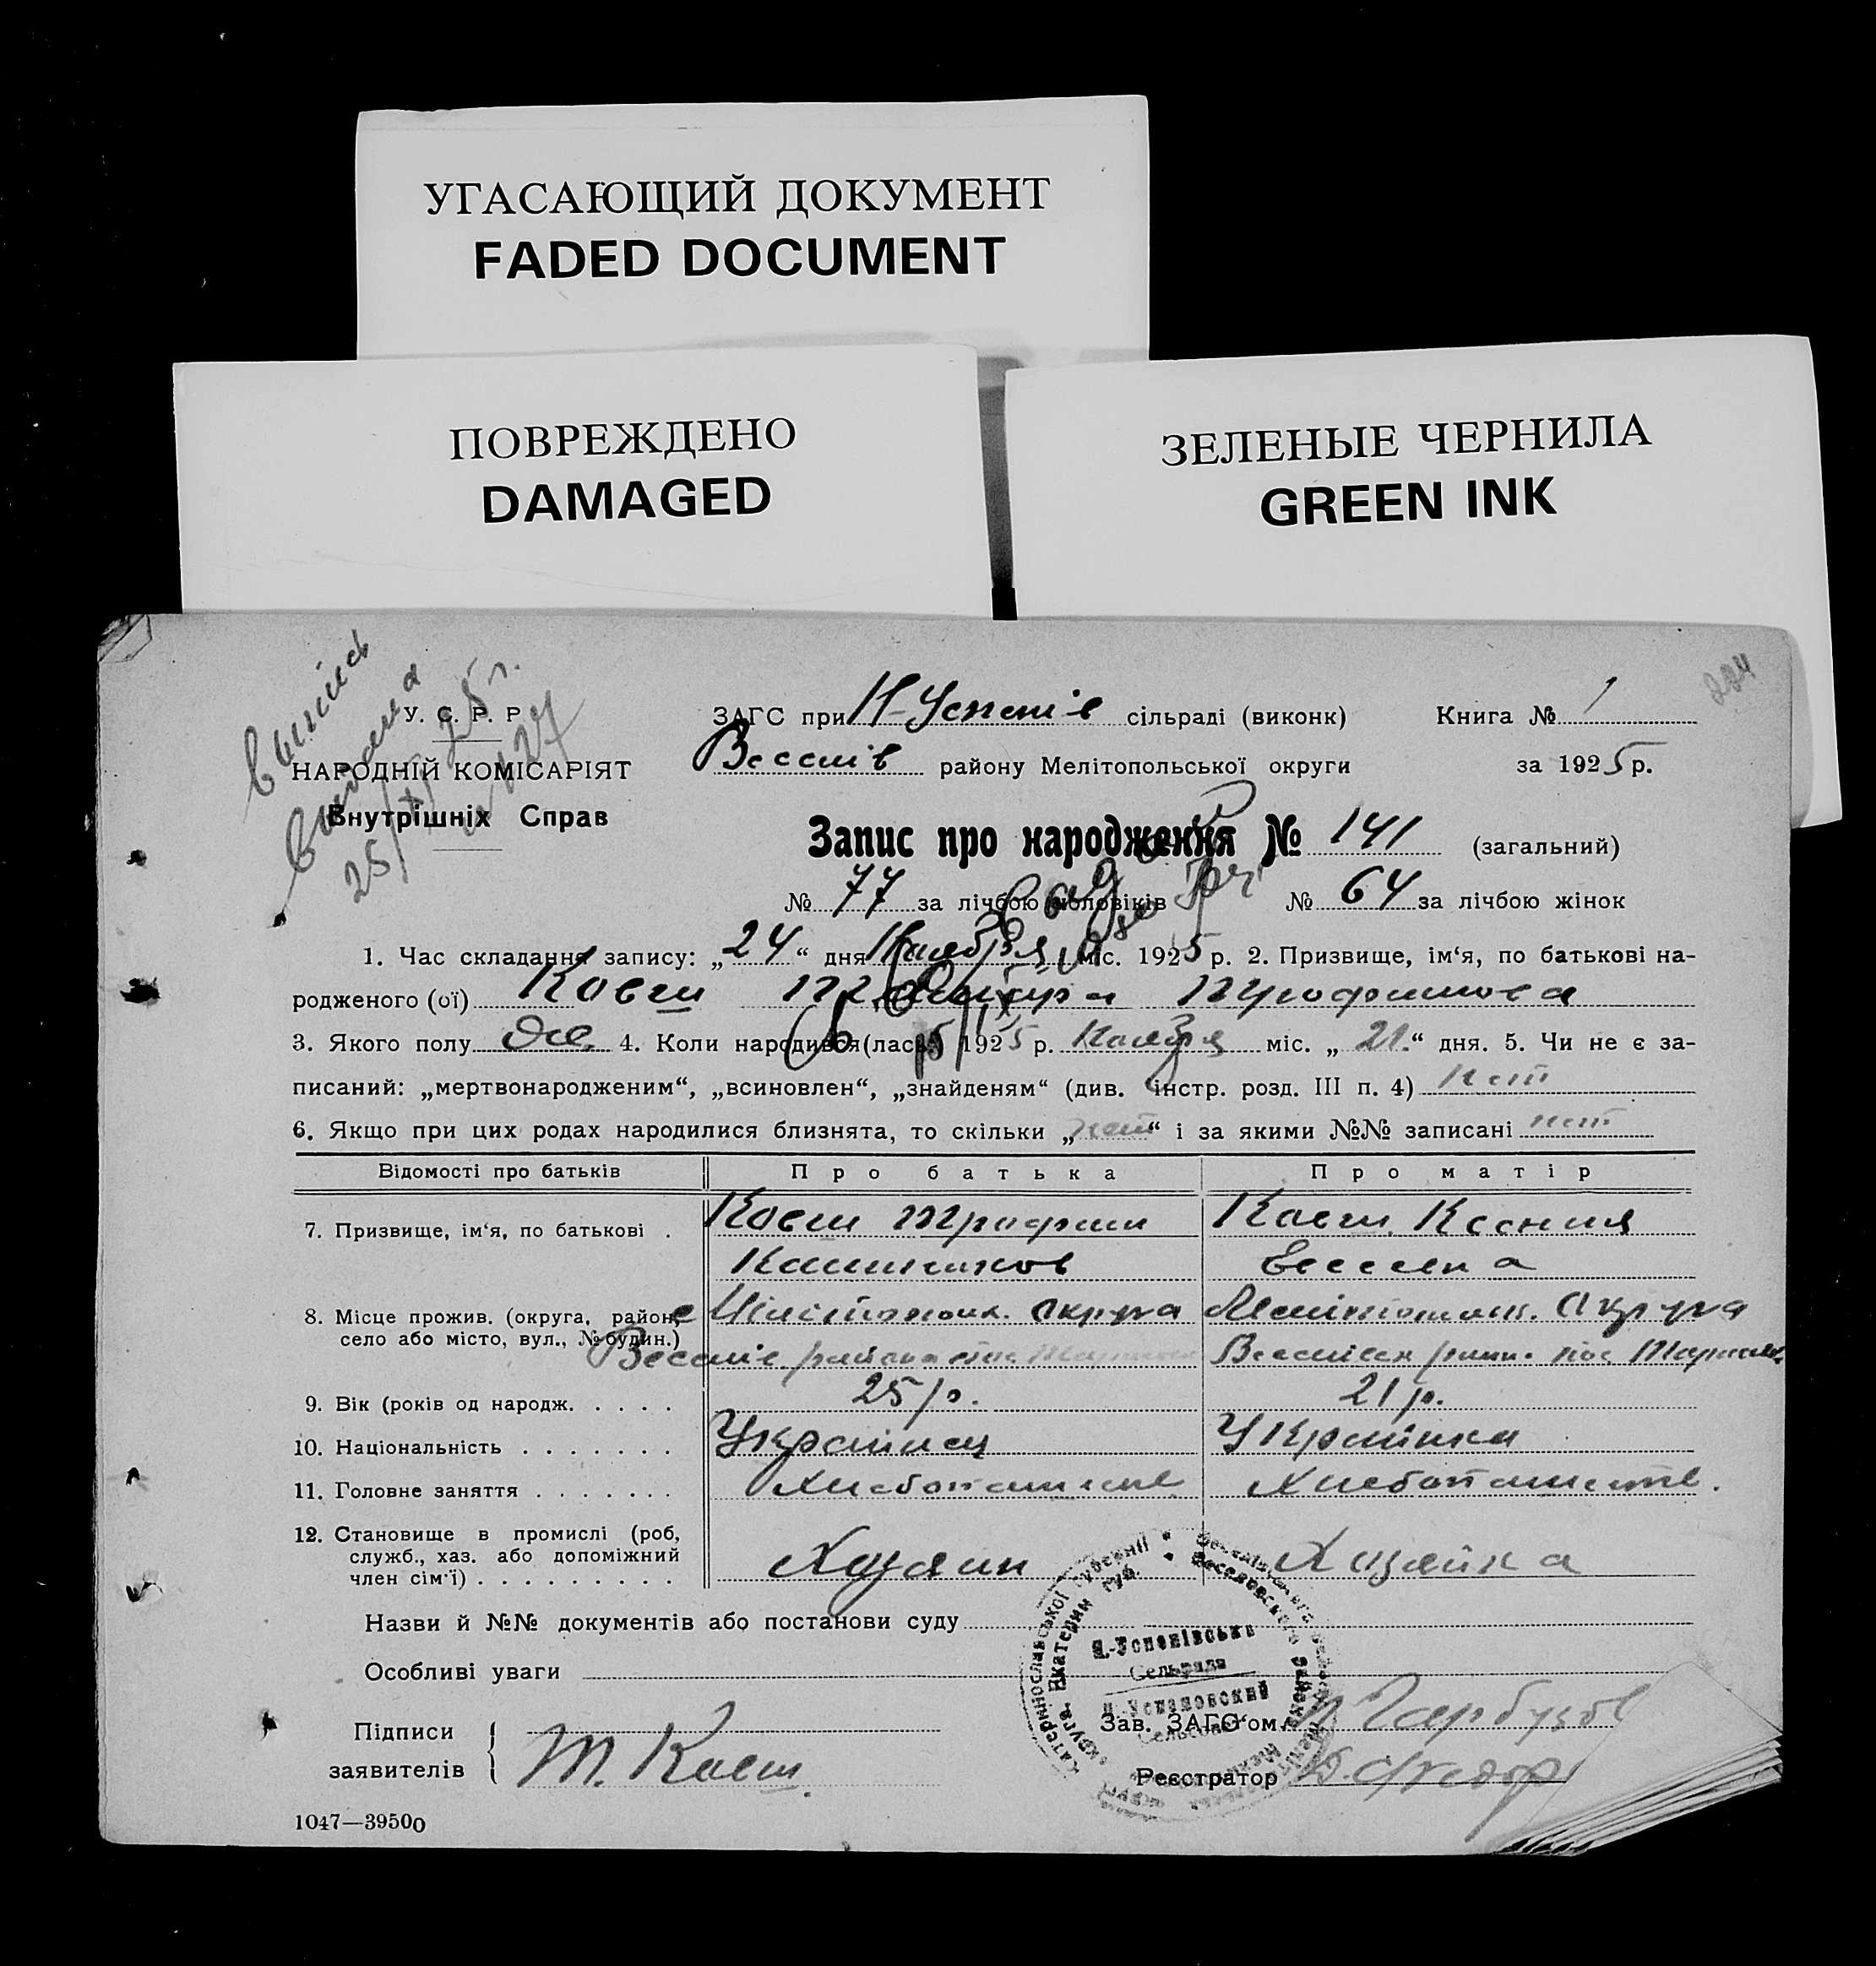 УГАСАЮЩИЙ ДОКУМЕНТ
FADED DOCUMENT
ПОВРЕЖДЕНО
DAMAGED
ЗЕЛЕНЫЕ ЧЕРНИЛА
GREEN INK
У. С. Р. Р.
НАРОДНІЙ КОМІСАРІЯТ
Внутрішніх Справ
25/XI 25 г.
ЗАГС при Н-Успенів сільраді (виконк) Книга № 1
Веселів району Мелітопольської округи за 1925 р.
Запис про народження № 141 (загальний)
№ 77 за лічбою чоловіків № 64 за лічбою жінок
1. Час складання запису: „24“ дня Ноября міс. 1925 р. 2. Призвище, ім‘я, по батькові на-
родженого (ої) Ковш
3. Якого полу Же. 4. Коли народився(лась) 1925 р. Ноября міс. „21“ дня. 5. Чи не є за-
писаний: „мертвонародженим“, „всиновлен“, „знайденям“ (див. інстр. розд. III п. 4) нет
6. Якщо при цих родах народилися близнята, то скільки „нет“ і за якими №№ записані нет
Відомості про батьків Про батька Про матір
7. Призвище, ім‘я, по батькові . Ковш Трофим Ковш Ксения
8. Місце прожив. (округа, район, село або місто, вул., № будин.) Мелітопол. Округа Мелітопол. Округа
9. Вік (років од народж. . . . . 25 р. 21 р.
10. Національність . . . . . . . Українец Українка
11. Головне заняття . . . . . . . Хлебопашеств Хлебопашеств.
12. Становище в промислі (роб, служб., хаз. або допоміжний член сім‘ї) . . . . . . . . . Хозяин Хозяйка
Назви й №№ документів або постанови суду
Особливі уваги
Н.-Успенівська
Сельрада
Н.-Успановский
Сельсовет
Підписи
заявителів
Т. Ковш.
Зав. ЗАГС‘ом Гарбузов
Реєстратор
1047—39500